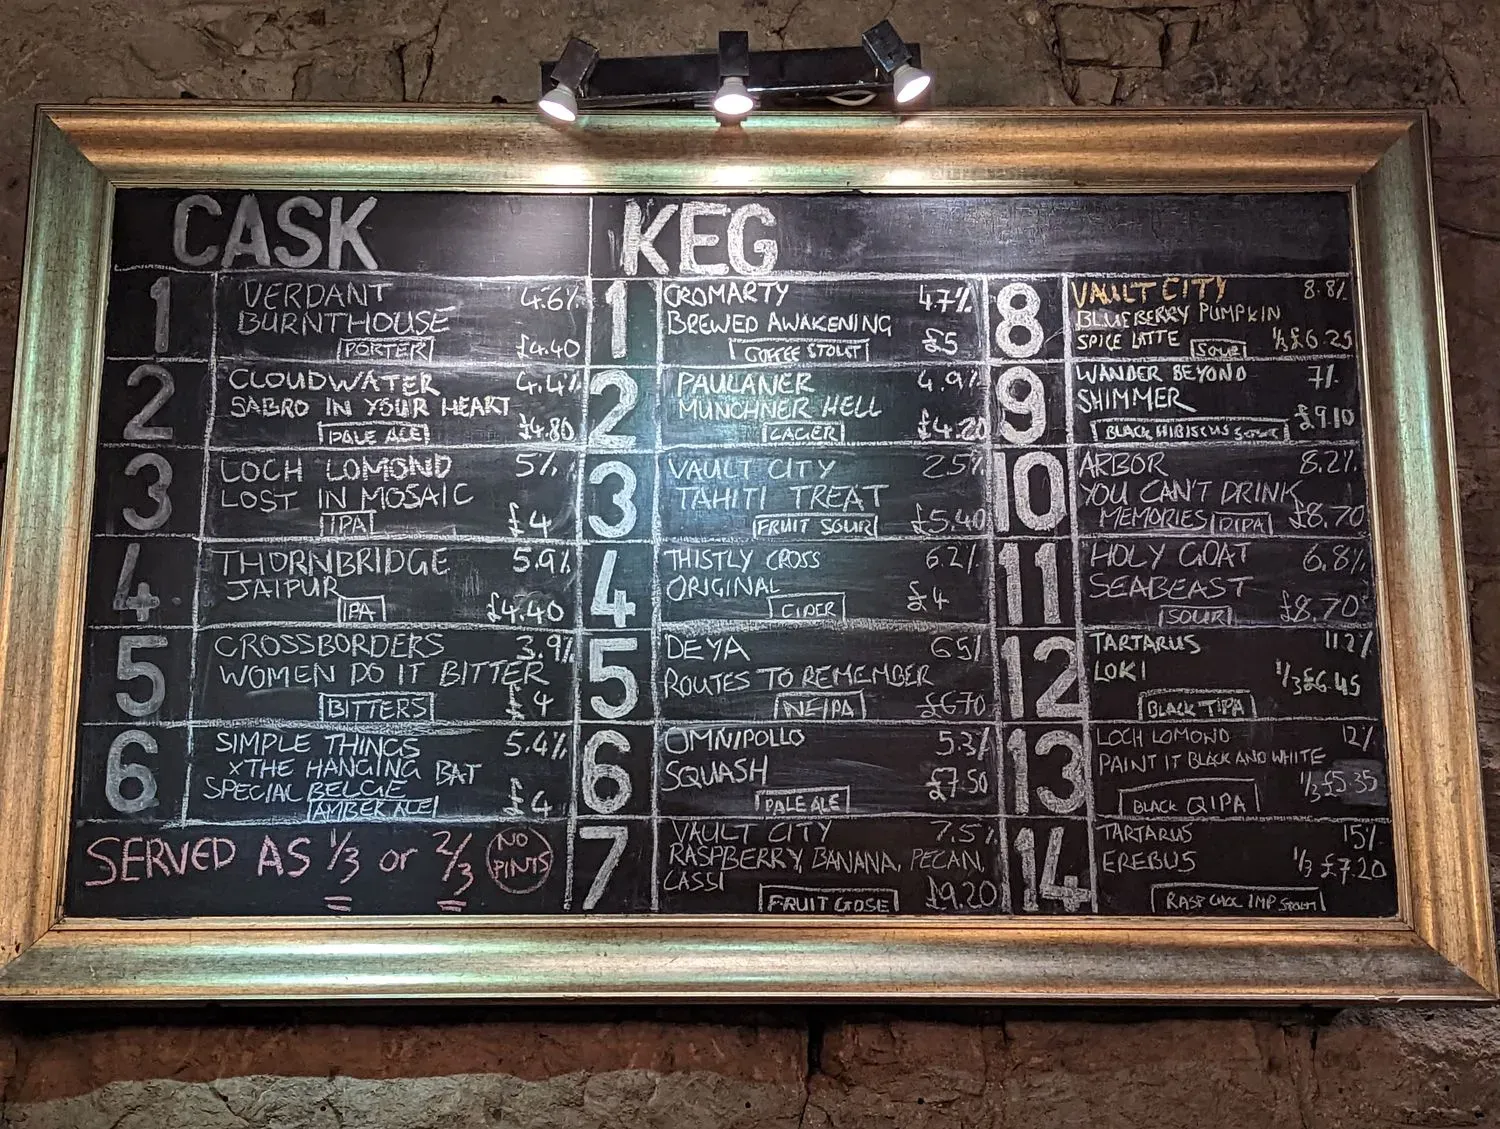 CASK
1 VERDANT 4.6%
BURNTHOUSE
PORTER £4.40
2 CLOUDWATER 4.4%
SABRO IN YOUR HEART
PALE ALE £4.80
3 LOCH LOMOND 5%
LOST IN MOSAIC
IPA £4
4 THORNBRIDGE 5.9%
JAIPUR
IPA £4.40
5 CROSSBORDERS 3.9%
WOMEN DO IT BITTER
BITTERS £4
6 SIMPLE THINGS 5.4%
X THE HANGING BAT
SPECIAL BELGIE
AMBER ALE £4
SERVED AS 1/3 or 2/3 NO PINTS
KEG
1 CROMARTY 4.7%
BREWED AWAKENING
COFFEE STOUT £5
2 PAULANER 4.9%
MUNCHNER HELL
LAGER £4.20
3 VAULT CITY 2.5%
TAHITI TREAT
FRUIT SOUR £5.40
4 THISTLY CROSS 6.2%
ORIGINAL
CIDER £4
5 DEYA 6.5%
ROUTES TO REMEMBER
NEIPA £6.70
6 OMNIPOLLO 5.3%
SQUASH
PALE ALE £7.50
7 VAULT CITY 7.5%
RASPBERRY, BANANA, PECAN,
CASSI
FRUIT GOSE £9.20
8 VAULT CITY 8.8%
BLUEBERRY PUMPKIN
SPICE LATTE SOUR 1/3 £6.25
9 WANDER BEYOND 7%
SHIMMER
BLACK HIBISCUS SOUR £9.10
10 ARBOR 8.2%
YOU CAN'T DRINK
MEMORIES DIPA £8.70
11 HOLY GOAT 6.8%
SEABEAST
SOUR £8.70
12 TARTARUS 11.2%
LOKI 1/3 £6.45
BLACK TIPA
13 LOCH LOMOND 12%
PAINT IT BLACK AND WHITE
BLACK QIPA 1/3 £5.35
14 TARTARUS 15%
EREBUS 1/3 £7.20
RASP CHOC IMP STOUT